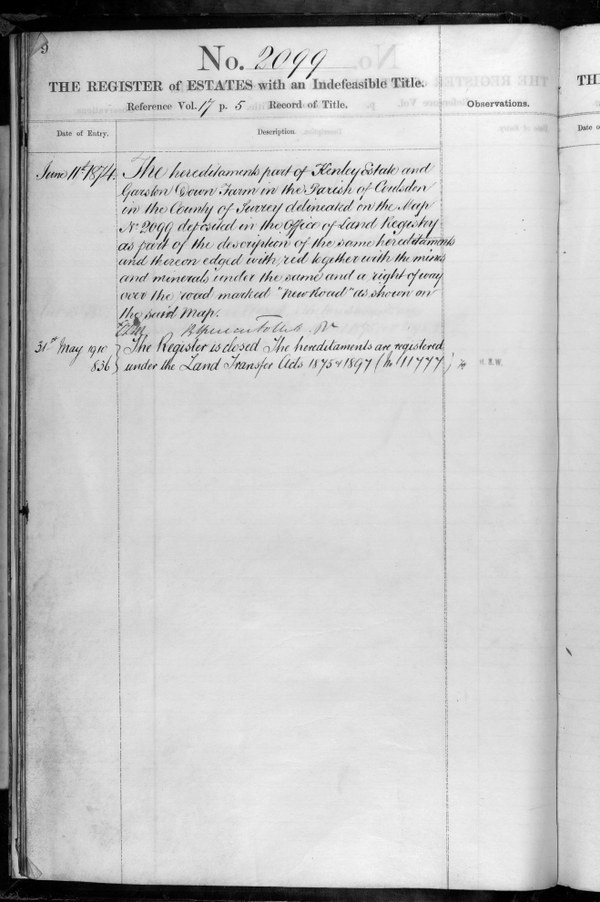 9
No. 2099
THE REGISTER of ESTATES with an Indefeasible Title.
Reference Vol. 17 p. 5 Record of Title.
Observations.
Date of Entry.
Description.
June 11th 1874.
The hereditaments part of Kenley Estate and
Garston Down Farm in the Parish of Coulsdon
in the County of Surrey delineated on the Map
No 2099 deposited in the Office of Land Registry
as part of the description of the same hereditaments
and thereon edged with red together with the mines
and minerals under the same and a right of way
over the road marked "New Road" as shown on
the said Map.
31st May 1910
836
The Register is closed The hereditaments are registered
under the Land Transfer Acts 1875 & 1897 (No 11777)
H.R.W.
TH
Date o